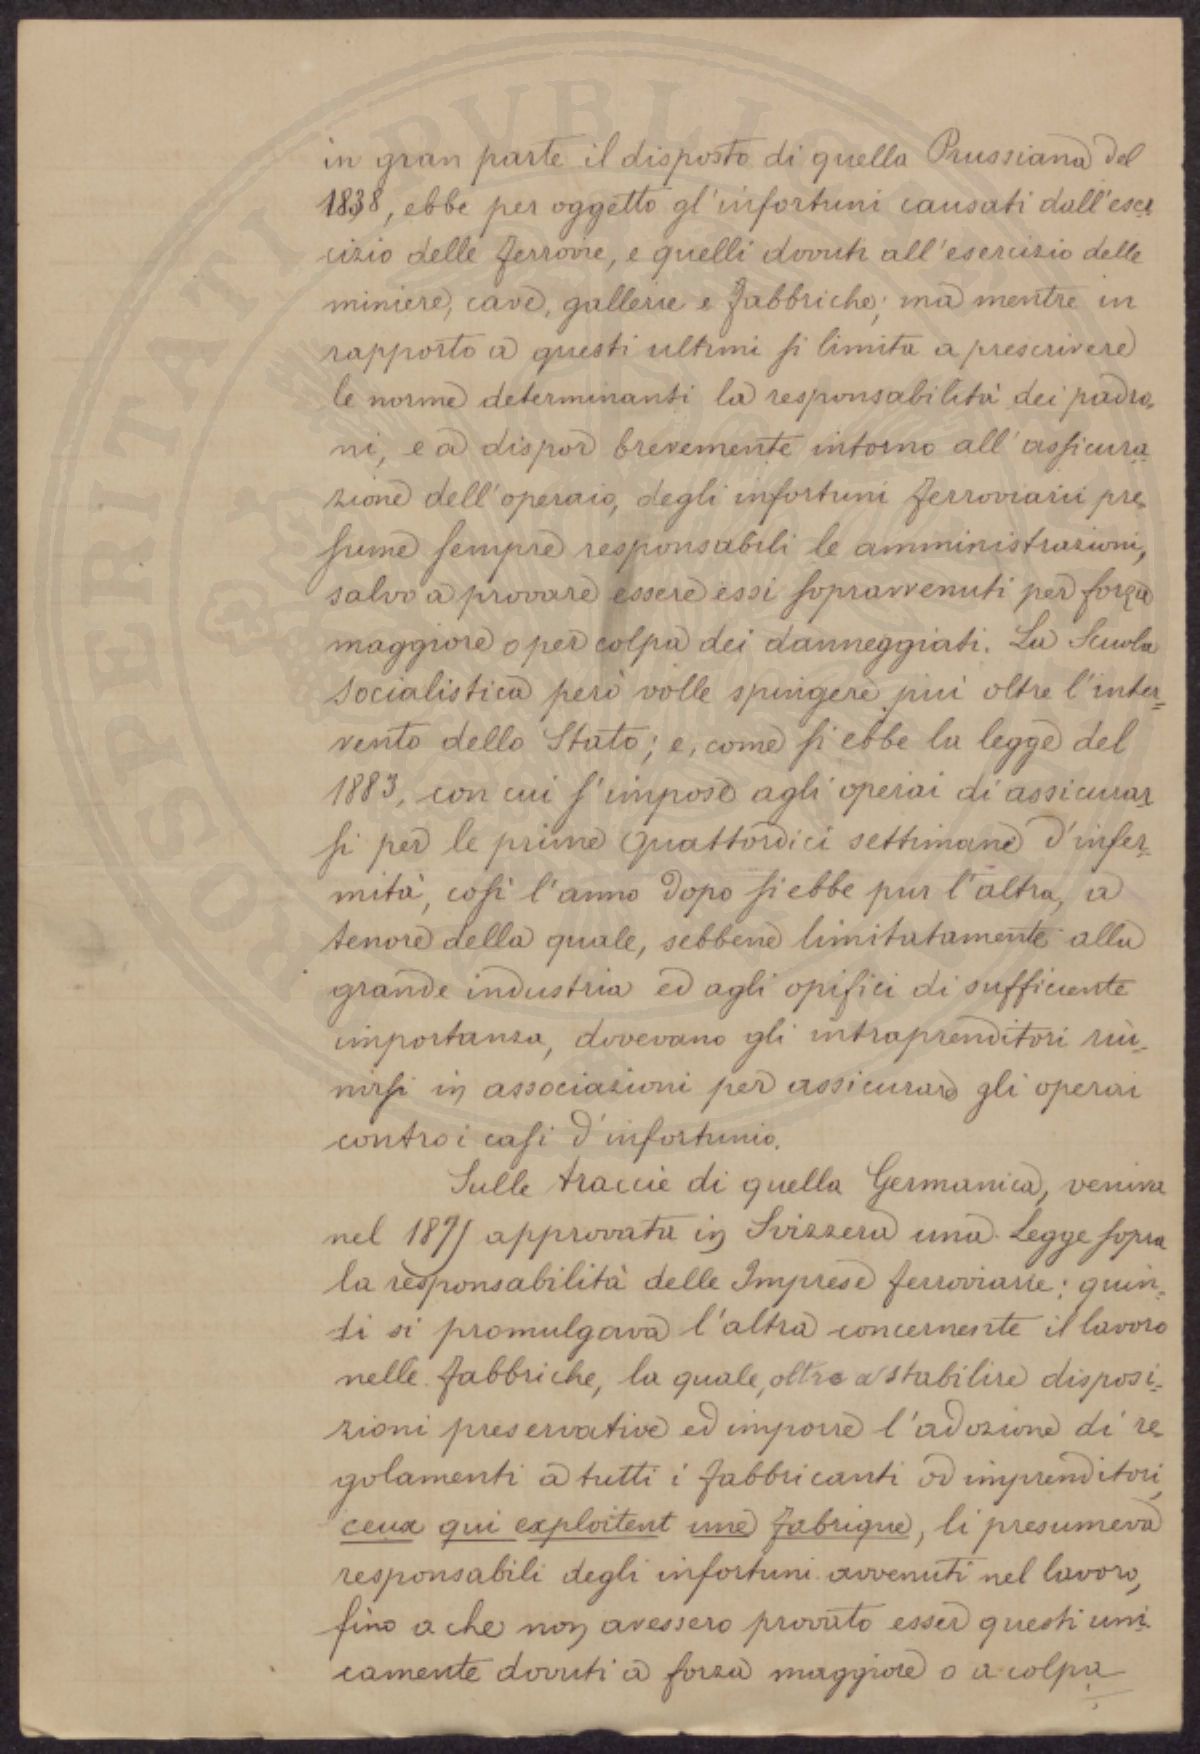 in gran parte il disposto di quella Prussiana del
1838, ebbe per oggetto gl'infortuni causati dall'eser
cizio delle ferrovie, e quelli dovuti all'esercizio delle
miniere, cave, gallerie e fabbriche; ma mentre in
rapporto a questi ultimi si limita a prescrivere
le norme determinanti la responsabilità dei padro-
ni, e a dispor brevemente intorno all'assicura
zione dell'operaio, degli infortuni ferroviarii pre-
sume sempre responsabili le amministrazioni,
salvo a provare essere essi sopravvenuti per forza
maggiore o per colpa dei danneggiati. La Scuola
socialistica però volle spingere più oltre l'inter=
vento dello Stato; e, come si ebbe la legge del
1883, con cui s'impose agli operai di assicurar
si per le prime quattordici settimane d'infer=
mità, così l'anno dopo si ebbe pur l'altra, a
tenore della quale, sebbene limitatamente alla
grande industria ed agli opifici di sufficiente
importanza, dovevano gli intraprenditori riu-
nirsi in associazioni per assicurare gli operai
contro i casi d'infortunio.
Sulle traccie di quella Germanica, veniva
nel approvata in Svizzera una Legge sopra
la responsabilità delle Imprese ferroviarie; quin-
di si promulgava l'altra concernente il lavoro
nelle fabbriche, la quale, oltre a stabilire disposi-
zioni preservative ed imporre l'adozione di re-
golamenti a tutti i fabbricanti od imprenditori,
ceux qui exploitent une fabrique, li presumeva
responsabili degli infortuni avvenuti nel lavoro,
fino a che non avessero provato esser questi uni
camente dovuti a forza maggiore o a colpa
POSPERITATI PVBLI